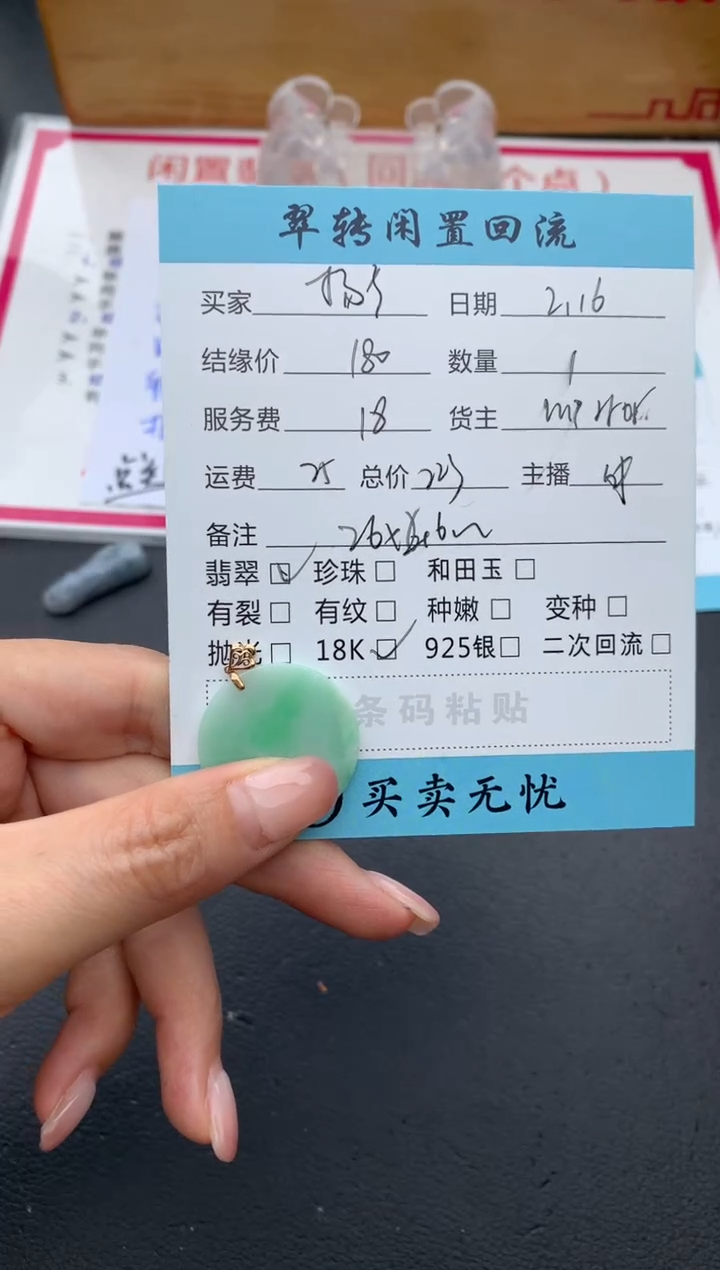 闲置
回
个点）
翠转闲置回流
买家 日期 2.16
结缘价 180 数量 1
服务费 18 货主
运费 25 总价 223 主播
备注
翡翠 珍珠 和田玉
有裂 有纹 种嫩 变种
抛光 18K 925银 二次回流
条码粘贴
买卖无忧